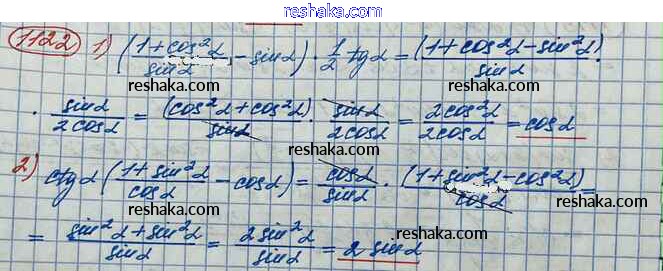 reshaka.com
1122 1) ((1+cos²α)/sinα − sinα) · 1/2 tgα = (1+cos²α−sin²α)/sinα ·
reshaka.com reshaka.com
· sinα/2cosα = (cos²α+cos²α)/sinα · sinα/2cosα = 2cos²α/2cosα = cosα
reshaka.com
2) ctgα ((1+sin²α)/cosα − cosα) = cosα/sinα · (1+sin²α−cos²α)/cosα =
reshaka.com reshaka.com
= (sin²α+sin²α)/sinα = 2sin²α/sinα = 2sinα
reshaka.com